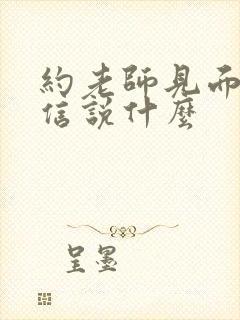 約老師見而
信說什麼
呈墨